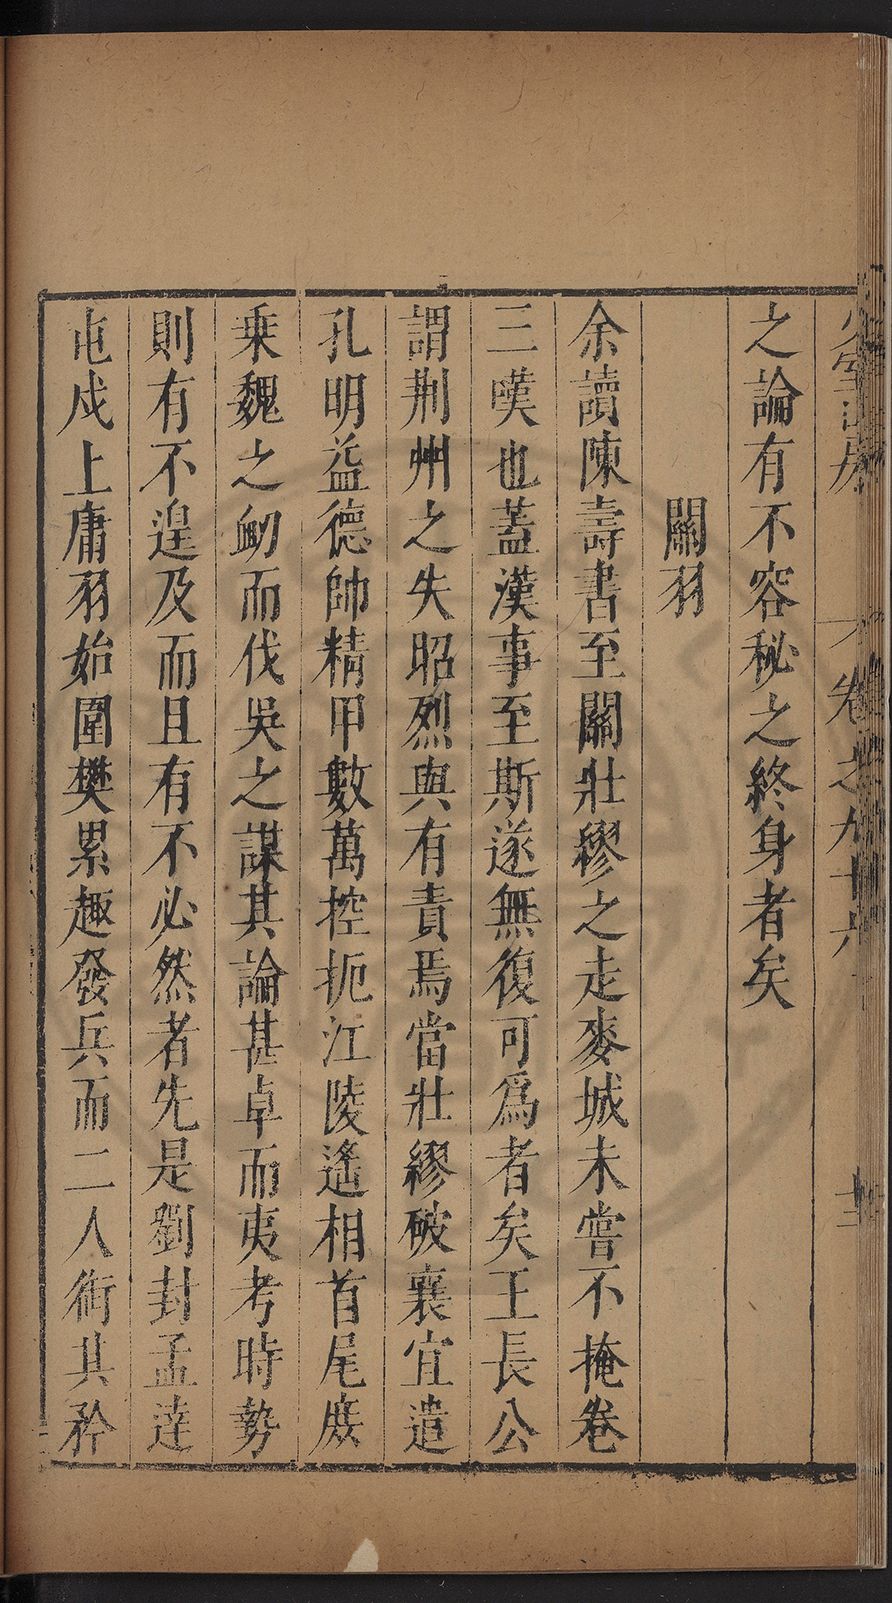 之論有不容秘之終身者矣
關羽
余讀陳壽書至關壯繆之走麥城未嘗不掩卷
三嘆也蓋漢事至斯遂無復可爲者矣王長公
謂荆州之失昭烈與有責焉當壯繆破襄宜遣
孔明益德帥精甲數萬控扼江陵遙相首尾廢
乗魏之衂而伐吳之謀其論甚卓而夷考時勢
則有不遑及而且有不必然者先是劉封孟達
屯戍上庸羽始圍樊累趣發兵而二人銜其矜
卷之九十六